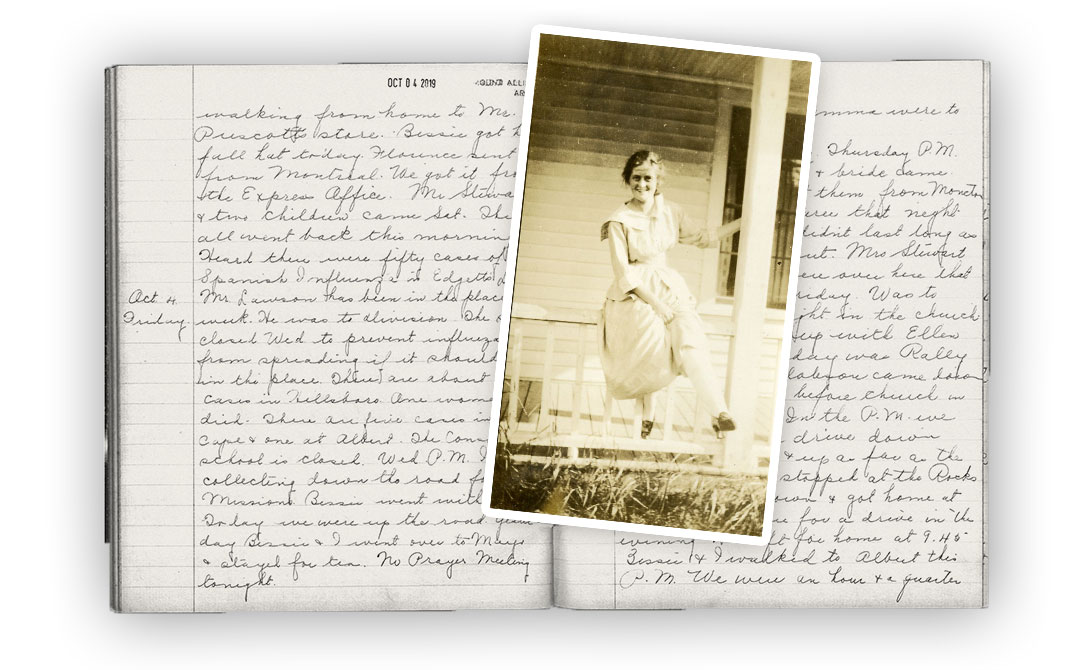 OCT 04 2019
walking from home to Mr.
Prescotts store. Bessie got h
fall hat today. Florence sent
from Montreal. We got it fro
the Express Office. Mr Stewa
& two children came Sat. The
all went back this mornin
Heard there were fifty cases of
Spanish Influenza in Edgetts L
Oct 4. Mr. Lawson has been in the place
Friday week. He was to division. The
closed Wed to prevent influenza
from spreading if it should
in the place. There are about
cases in Hillsboro. One woman
died. There are five cases in
Cape & one at Albert. The Cons
school is closed. Wed P.M. I
collecting down the road f
Missions Bessie went with
Today we were up the road
day Bessie & I went over to Marys
& stayed for tea. No Prayer Meeting
tonight.
mma were to
Thursday P.M.
& bride came
them from Moncton
that night
didnt last long as
ut. Mrs Stewart
over here that
day. Was to
ght in the church
sup with Ellen
day was Rally
came down
before church in
In the P.M. we
drive down
& up as far as the
stopped at the Rocks
own & got home at
for a drive in the
evening for home at 9.45
Bessie & I walked to Albert this
P.M. We were an hour & a quarter